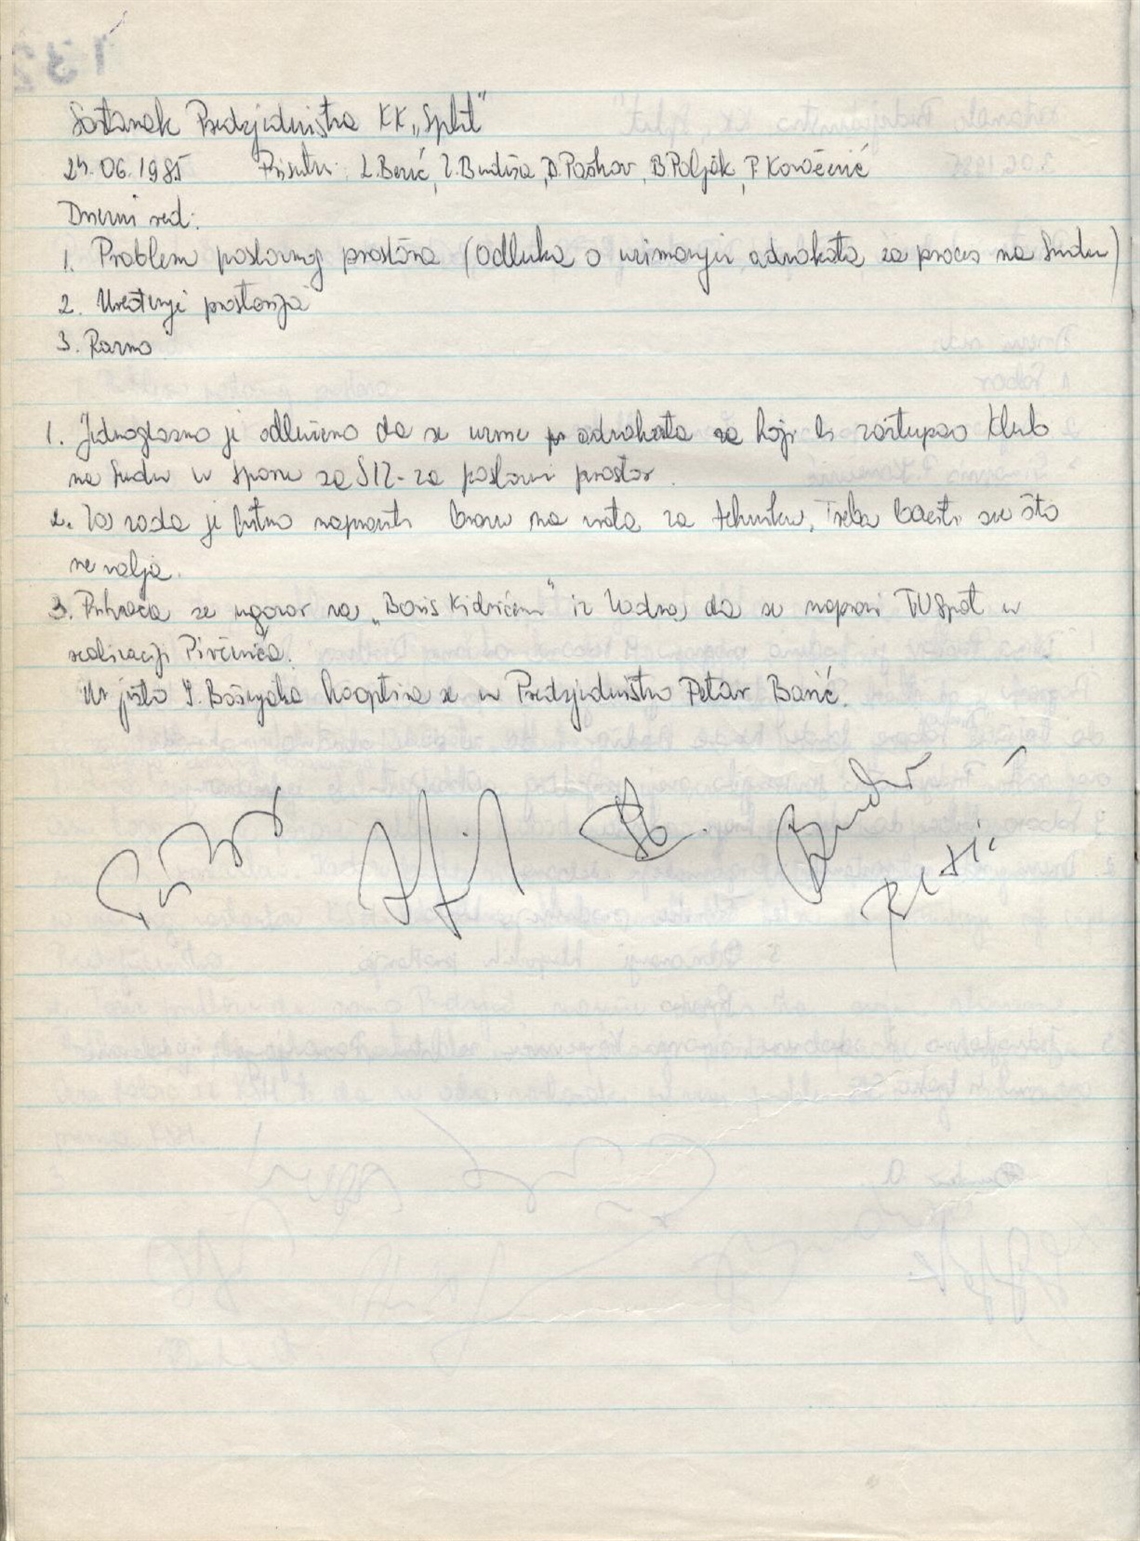 Sastanak Predsjedništva KK „Split“
24.06.1985 Prisutni: L.Berić, Z.Budiša, D.Paškov, B.Poljak, P.Kovačević
Dnevni red:
1. Problem poslovnog prostora (odluka o uzimanju advokata za proces na sudu)
2. Uređenje prostorija
3. Razno
1. Jednoglasno je odlučeno da se uzme advokata za koji bi zastupao Klub
na sudu u sporu sa SIZ-za poslovni prostor.
2. Za sada je bitno napraviti bravu na vrata za tehniku, Treba baciti sve što
ne valja.
3. Prihvaća se ugovor sa „Boris Kidričem“ iz Zadra, da se napravi TV Spot u
realizaciji Pivčevića.
Na mjesto Bošnjaka kooptira se u Predsjedništvo Petar Barić.